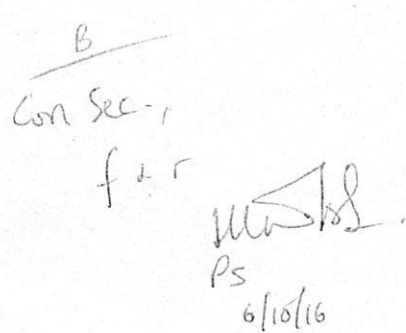 B
Con Sec.,
f & r
PS
6/10/16